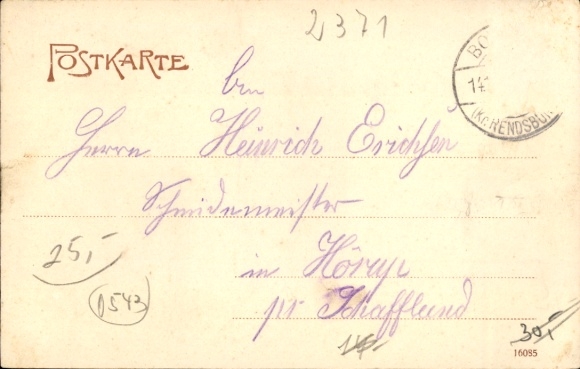 2371
POSTKARTE
BO
14.
(Kr. RENDSBUR
Herrn Heinrich Erichsen
Schneidemeister
in Höxyr
pr Schafflund
25,-
0543
14,-
30,-
16085